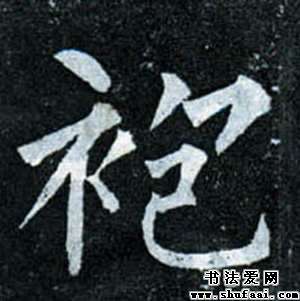 袍
书法爱网
www.shufaai.com